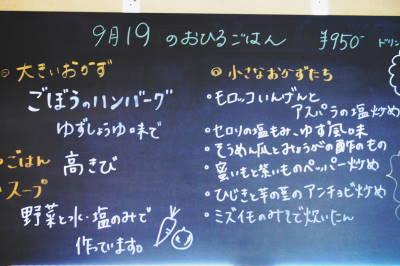 9月19 のおひるごはん ¥950-
ドリン
大きいおかず
ごぼうのハンバーグ
ゆずしょうゆ味で
ごはん 高きび
スープ
野菜と水・塩のみで
作っています。
小さなおかずたち
・モロッコいんげんと
アスパラの塩炒め
・セロリの塩もみ、ゆず風味
・そうめん瓜とみょうがの酢のもの
・蜜いもと紫いものペッパー炒め
・ひじきと芋の茎のアンチョビ炒め
・ミズイモのみそで炊いたん